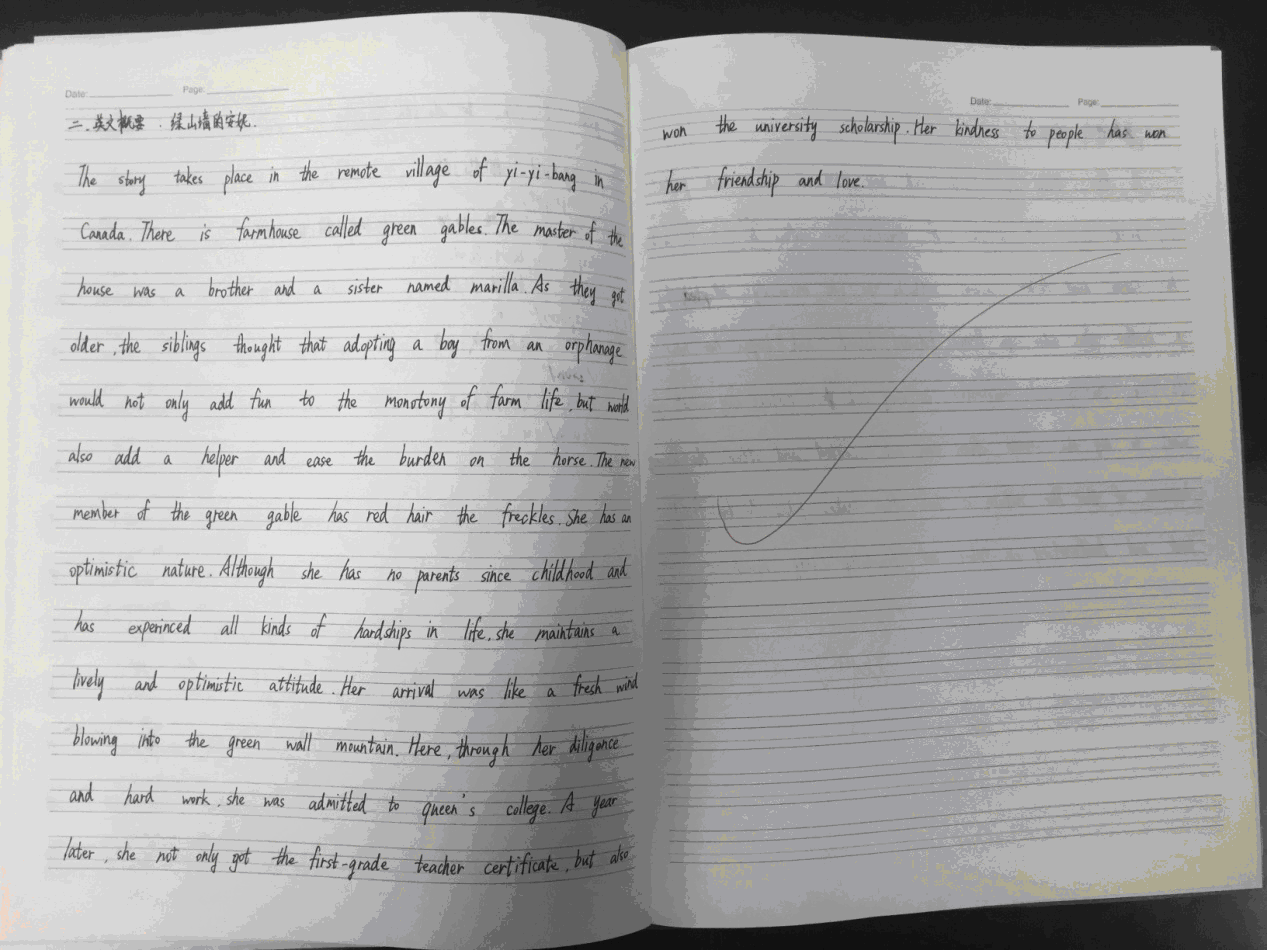 Date: Page:
二、英文概要 . 绿山墙的安妮.
The story takes place in the remote village of yi-yi-bang in
Canada. There is farmhouse called green gables. The master of the
house was a brother and a sister named marilla. As they got
older, the siblings thought that adopting a boy from an orphanage
would not only add fun to the monotony of farm life, but would
also add a helper and ease the burden on the horse. The new
member of the green gable has red hair the freckles. She has an
optimistic nature. Although she has no parents since childhood and
has experinced all kinds of hardships in life, she maintains a
lively and optimistic attitude. Her arrival was like a fresh wind
blowing into the green wall mountain. Here, through her diligence
and hard work, she was admitted to queen's college. A year
later, she not only got the first-grade teacher certificate, but also
Date: Page:
won the university scholarship. Her kindness to people has won
her friendship and love.